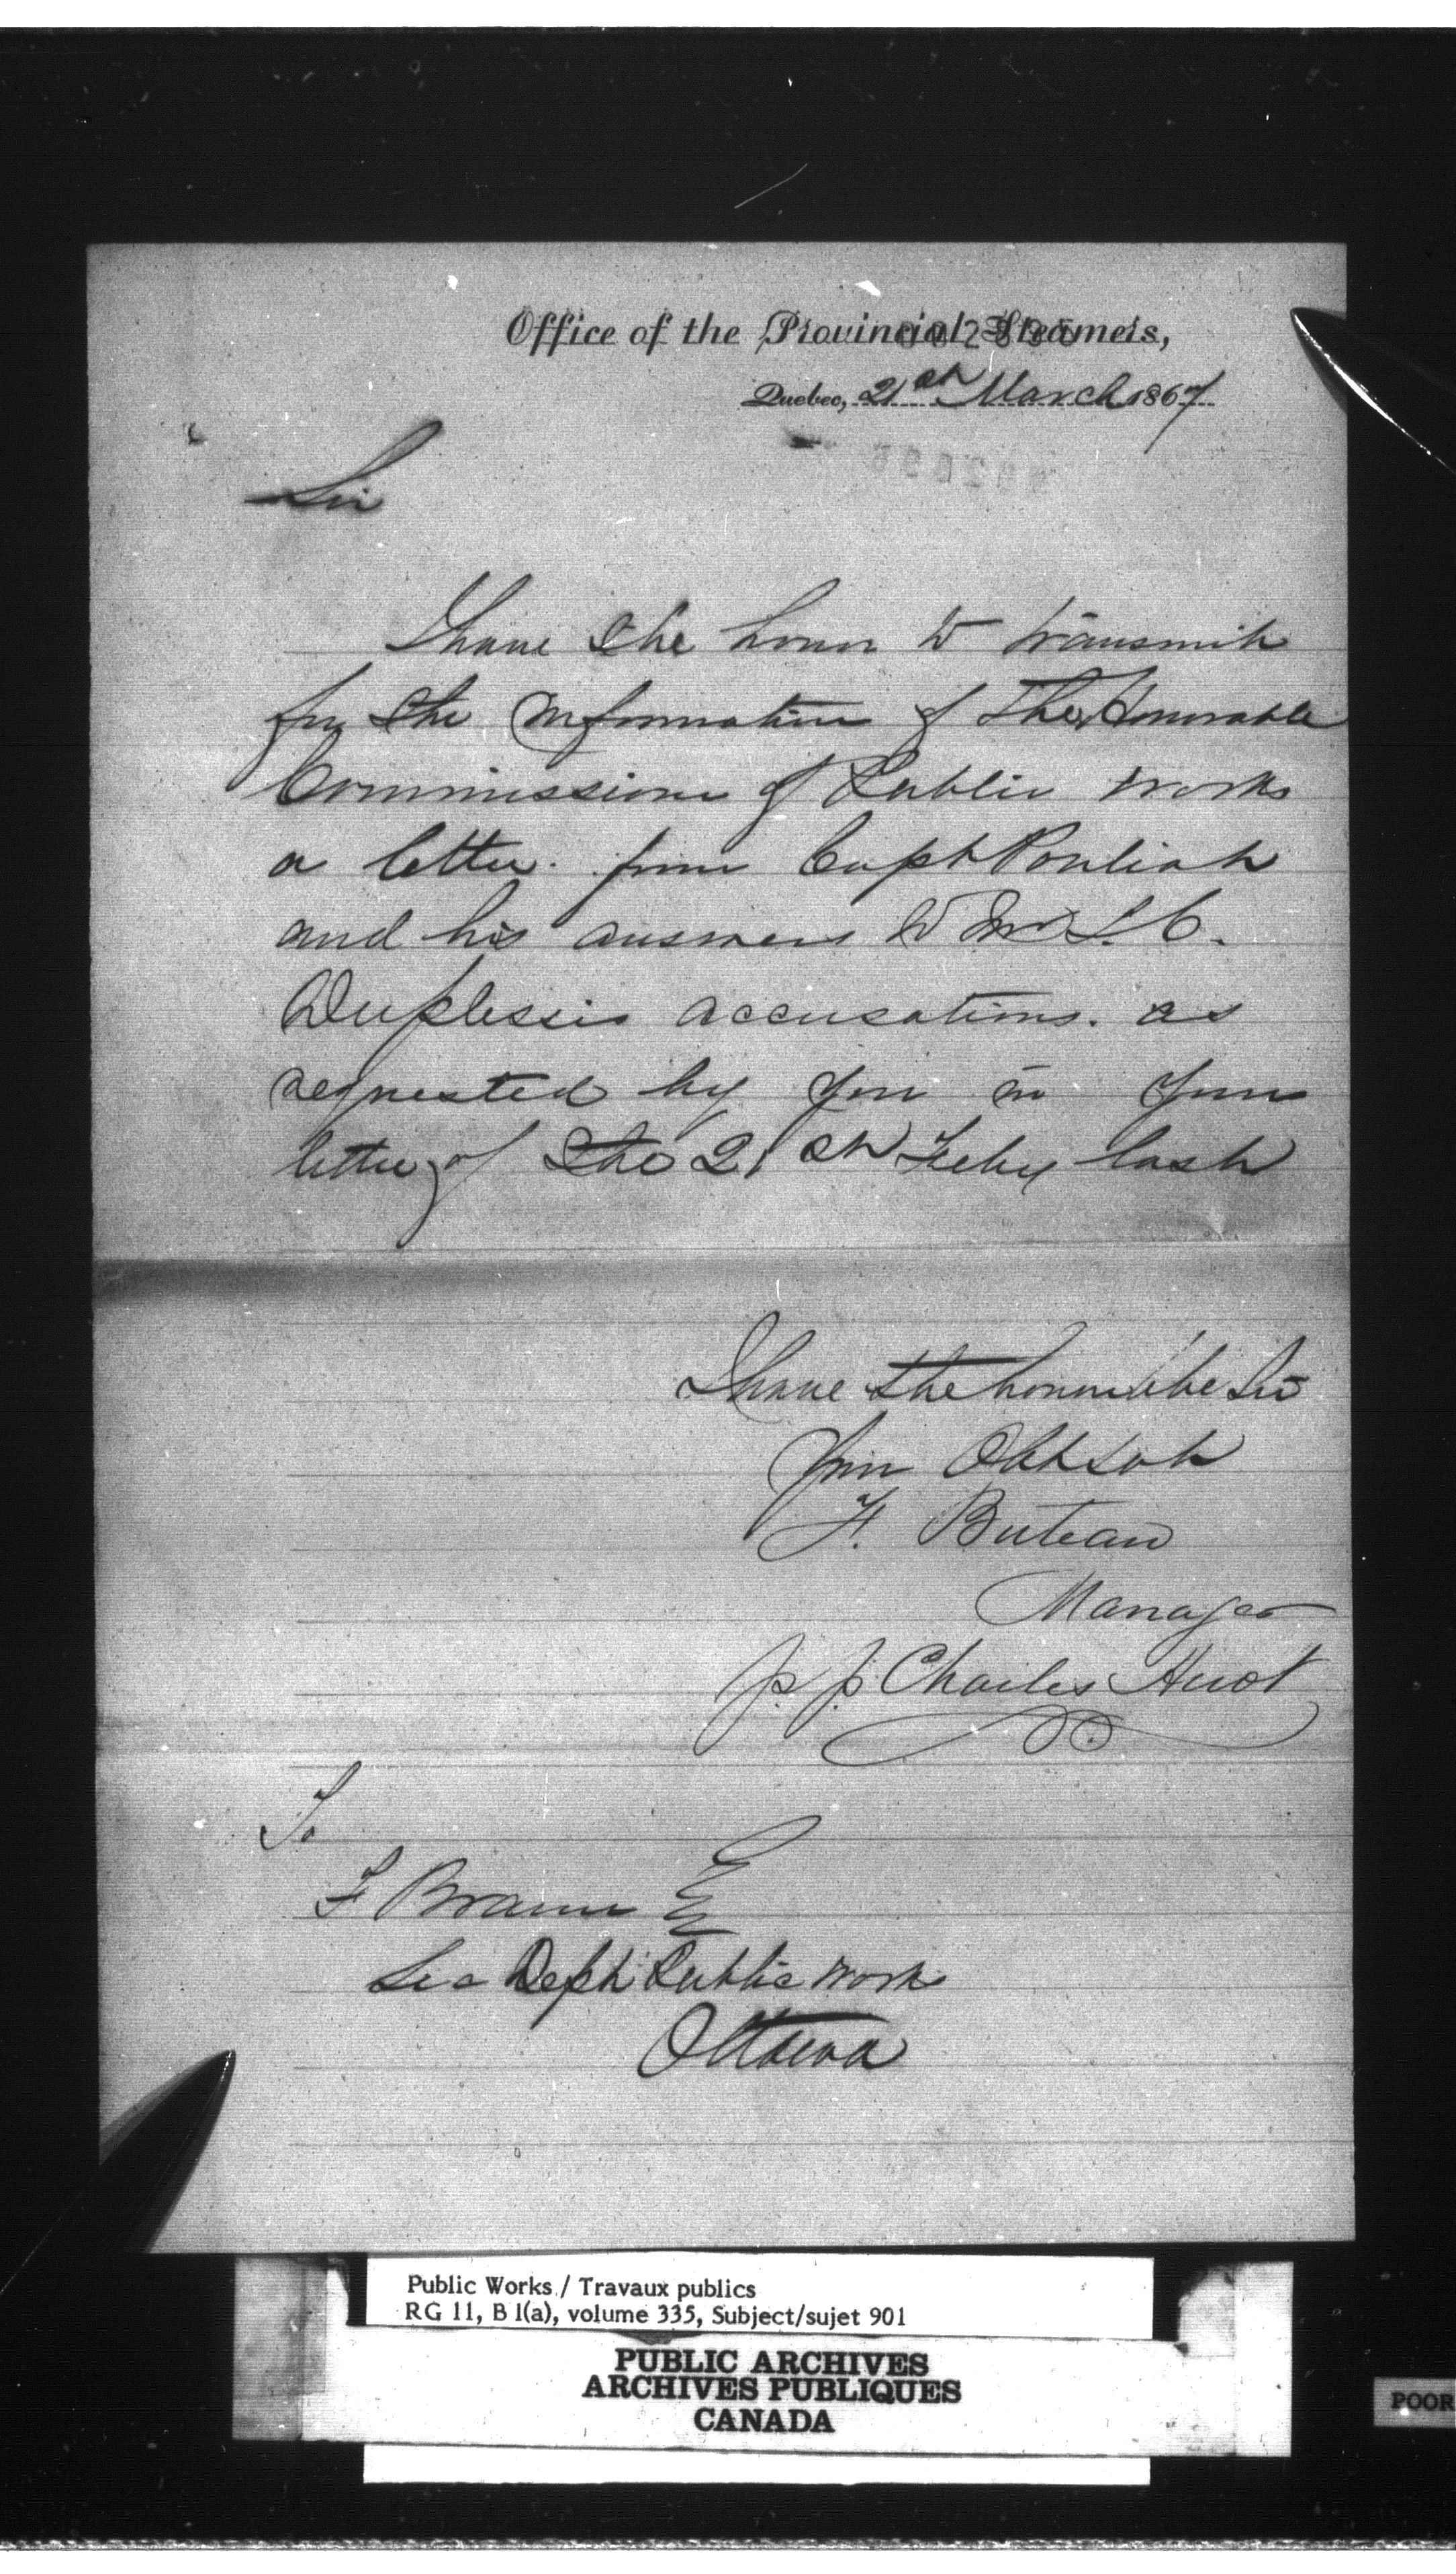 Office of the Provincial Steamers,
Quebec, 21st March 1867
Sir
I have the honor to transmit
for the Information of The Honorable
Commissioner of Public Works
a letter from Capt Pouliot
and his answers to Mr L. C.
Duplessis accusations. as
requested by you in your
letter of the 21st Feby last
I have the honor to be Sir
Your Obt Sert
F. Buteau
Manager
p. p. Charles Huot
To
F Braun E
Sec Dept Public Work
Ottawa
Public Works / Travaux publics
RG 11, B 1(a), volume 335, Subject/sujet 901
PUBLIC ARCHIVES
ARCHIVES PUBLIQUES
CANADA
POOR